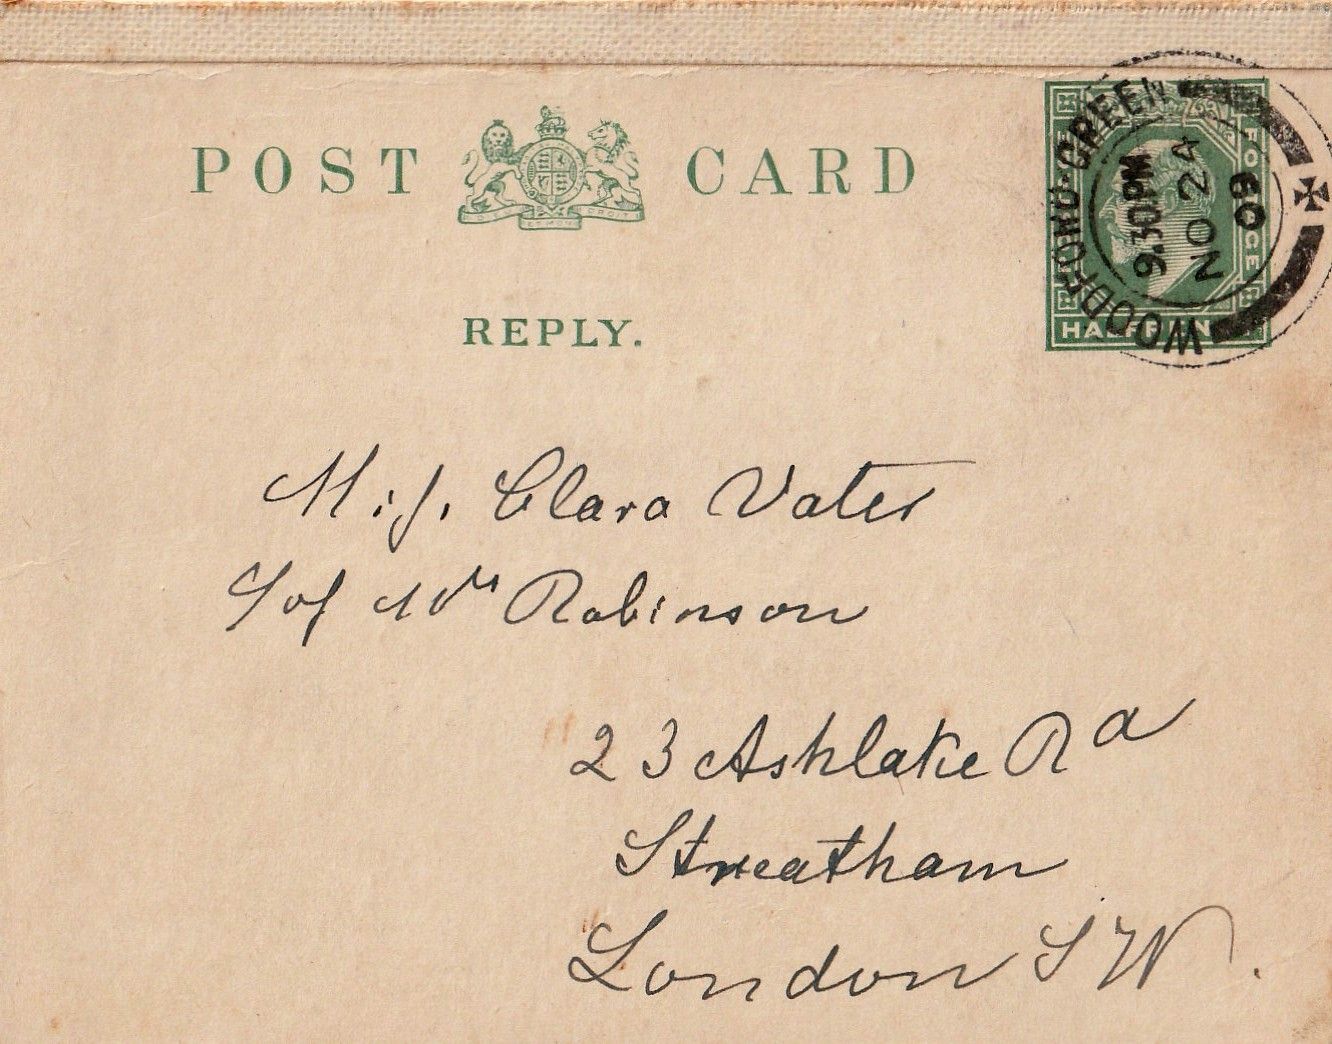 POST CARD
REPLY.
WOODFORD·GREEN
9.30PM
NO 24
09
HALFPENNY
Miss. Clara Vater
C/of Mrs Robinson
23 Ashlake Rd
Streatham
London S W.